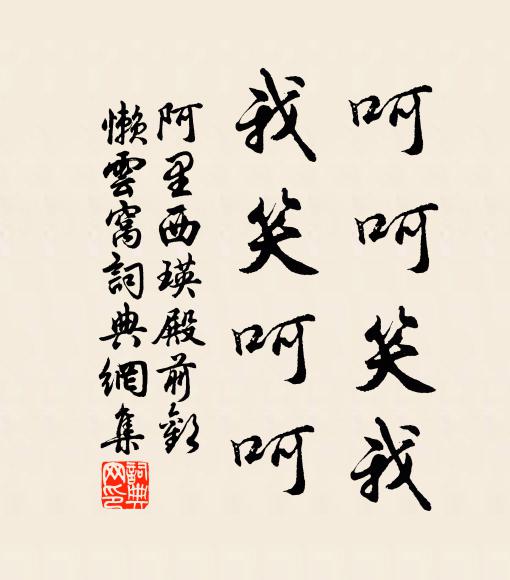 呵呵笑我
我笑呵呵
阿里西瑛殿前歡
懶雲窩詞典網集
詞典
网印